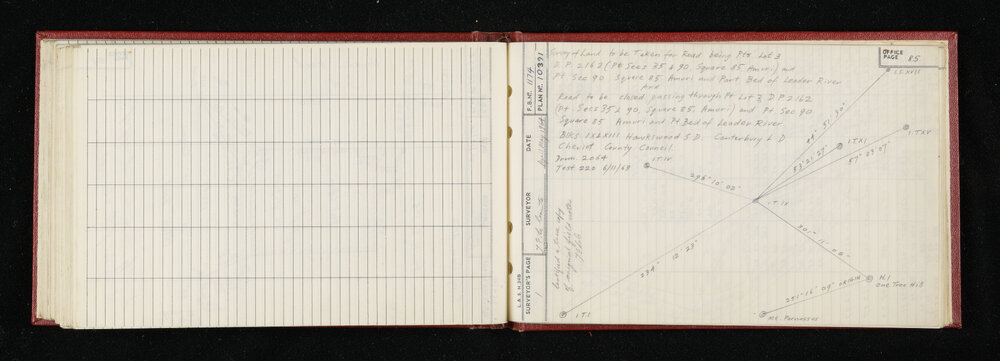 OFFICE
PAGE 85
Survey of Land to be Taken for Road being Pts Lot 3
D.P. 2162 (Pt Secs 35 & 90, Square 85 Amuri) and
Pt Sec 90 Square 85 Amuri and Part Bed of Leader River
And
Road to be closed passing through Pt Lot 3 D.P 2162
(Pt Secs 35 & 90, Square 85, Amuri) and Pt Sec 90
Square 85 Amuri and Pt Bed of Leader River.
Blks IX & XIII Hawkswood S.D. Canterbury L D
Cheviot County Council.
Drwn. 2064
Test 220 6/11/69
I.T.IV
298° 10' 02"
I.T.XVIII
44° 51' 30"
I.TXI
53° 21' 27"
I.TXV
57° 03' 07"
I.T.IX
301° 11' 06"
234° 12' 23"
I.T.I
N.1
One Tree Hill
251° 16' 09" ORIGIN
Mt. Parnassus
Certified a true copy
of original field notes
F.B. Nº. 1174
PLAN Nº. 10391
DATE
April May 1964
SURVEYOR
SURVEYOR'S PAGE
1
L. & S. H. 26B